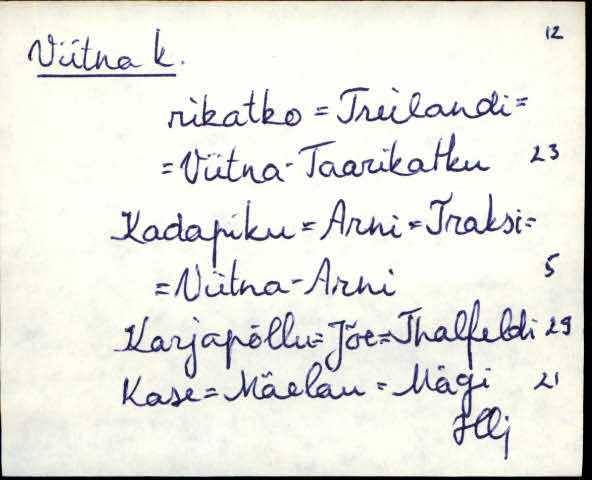 12
Viitna k.
rikatko = Treilandi =
= Viitna-Taarikatku 23
Kadapiku = Arni = Traksi =
= Viitna-Arni 5
Karjapõllu = Jõe = Thalfeldi 29
Kase = Mäelau = Mägi 21